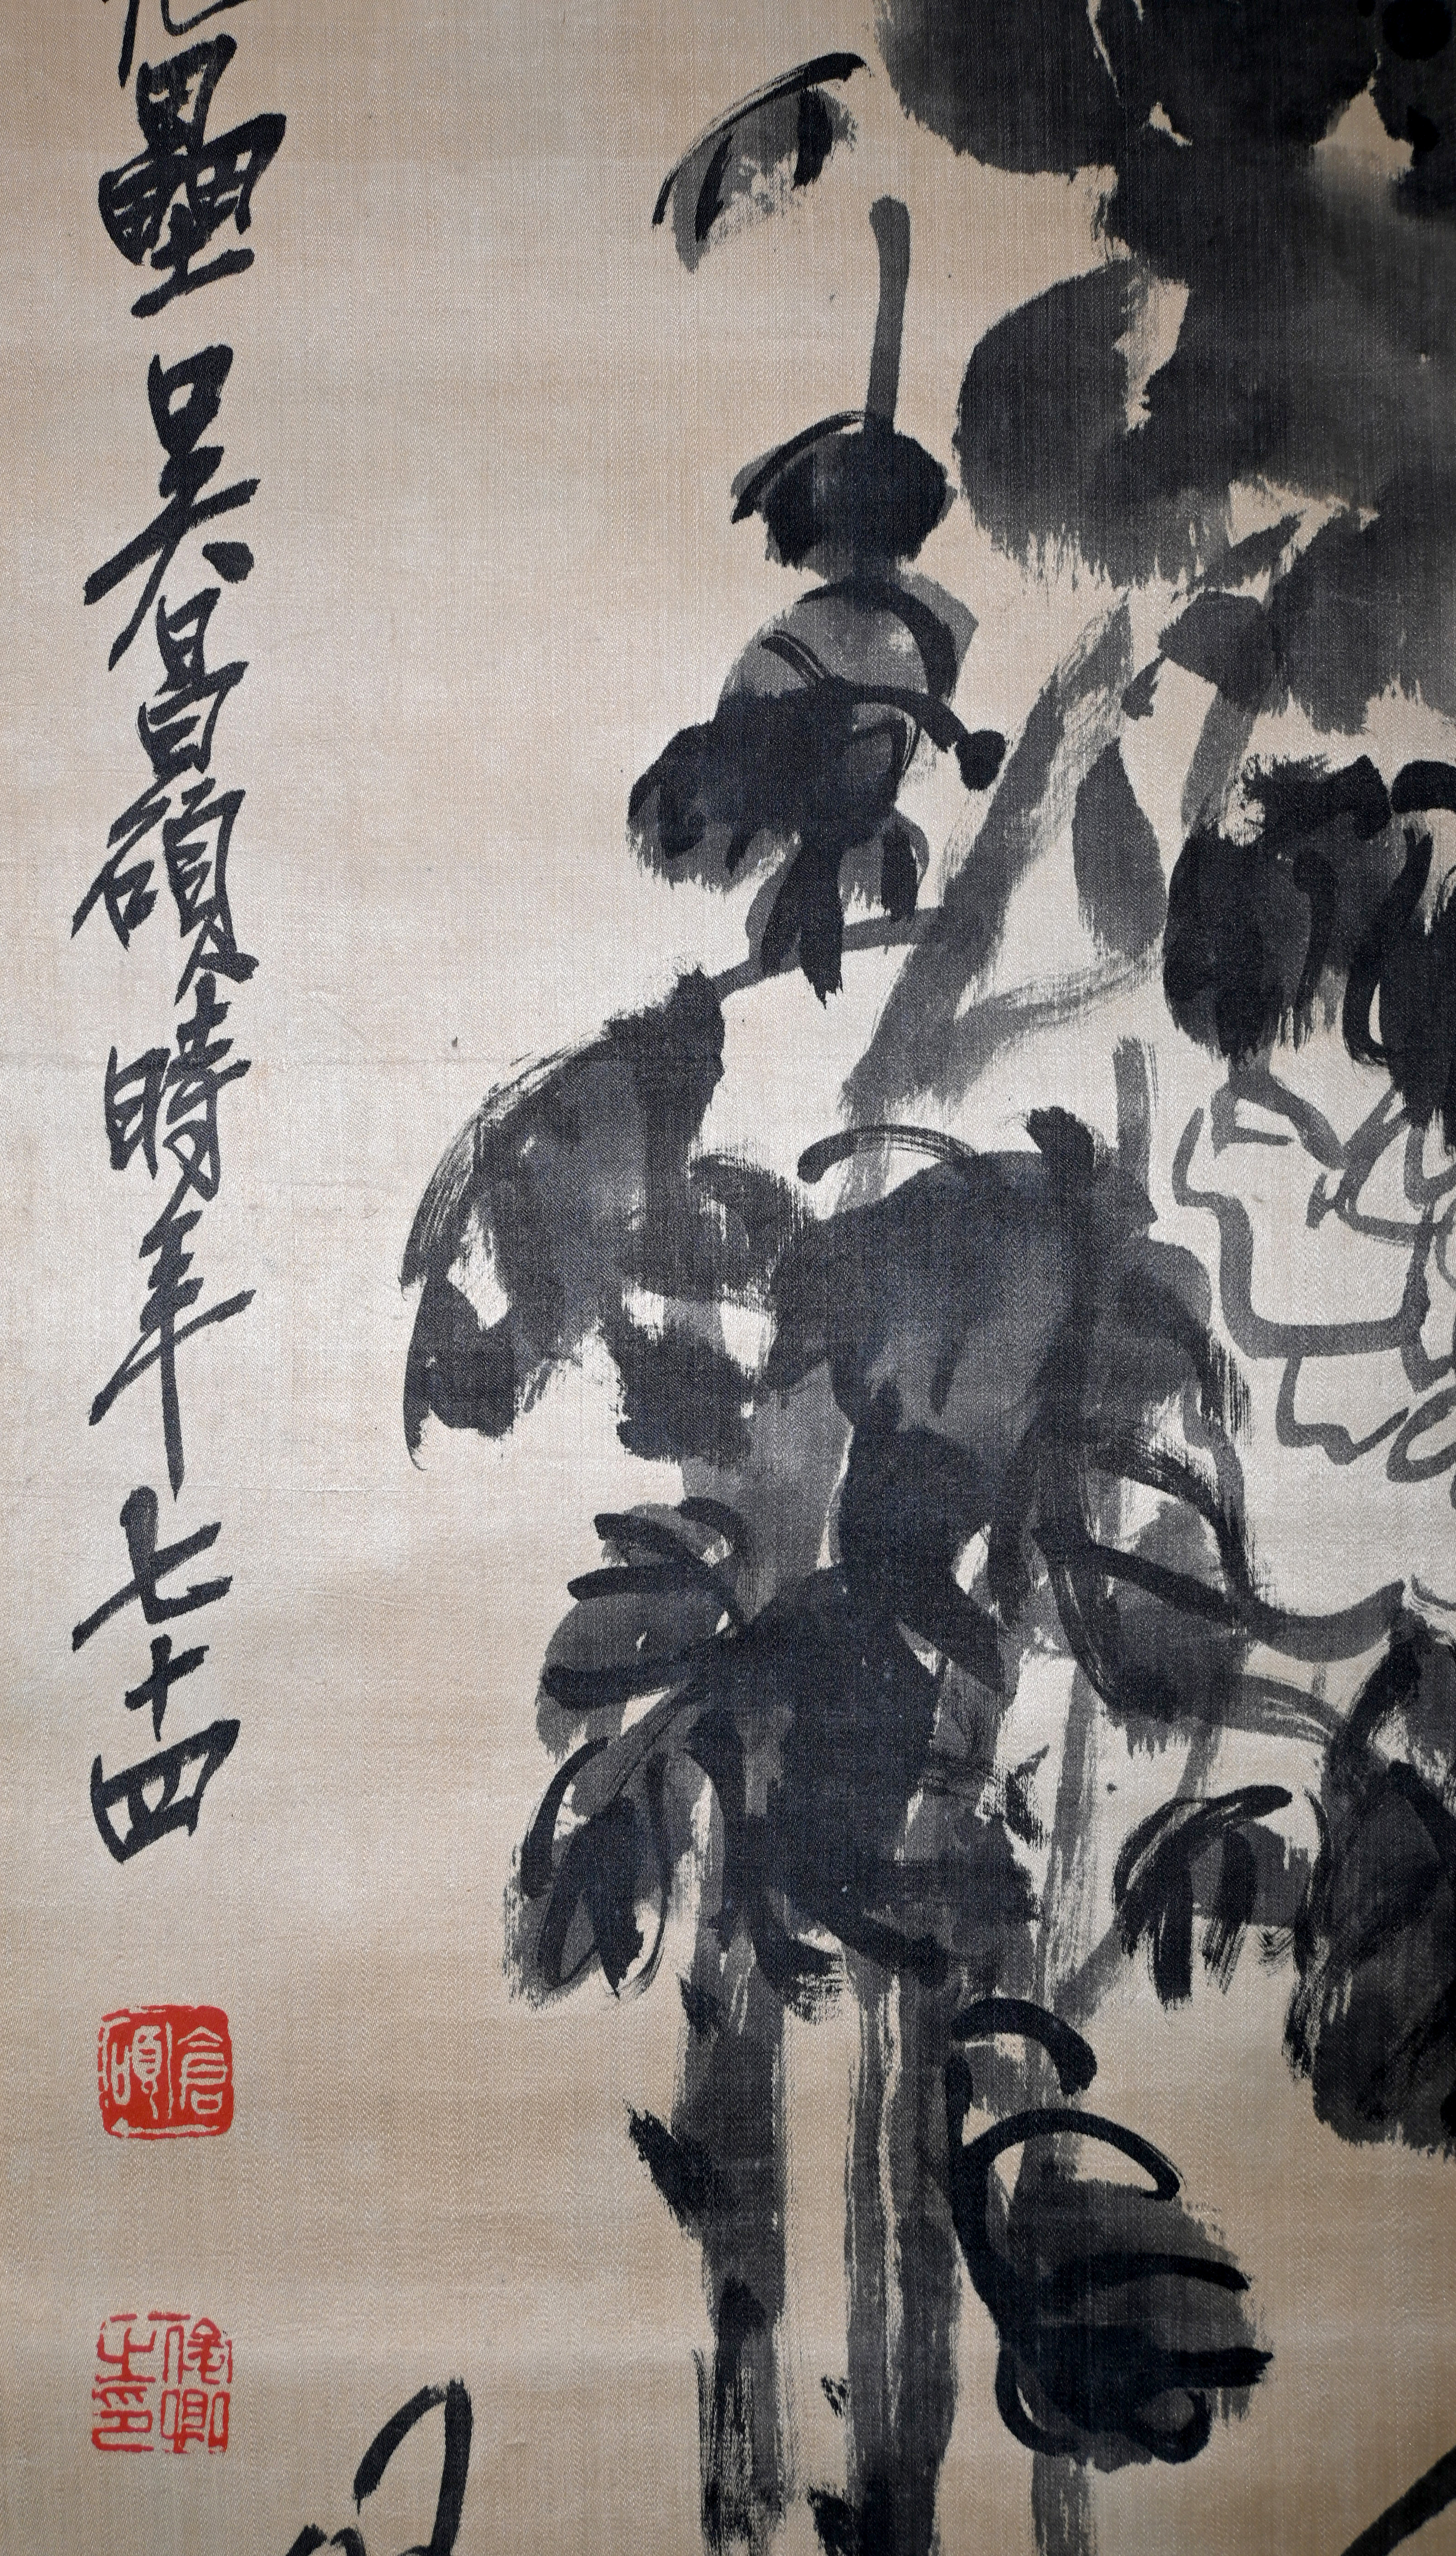 壘吳昌碩時年七十四
倉碩
俊卿之印